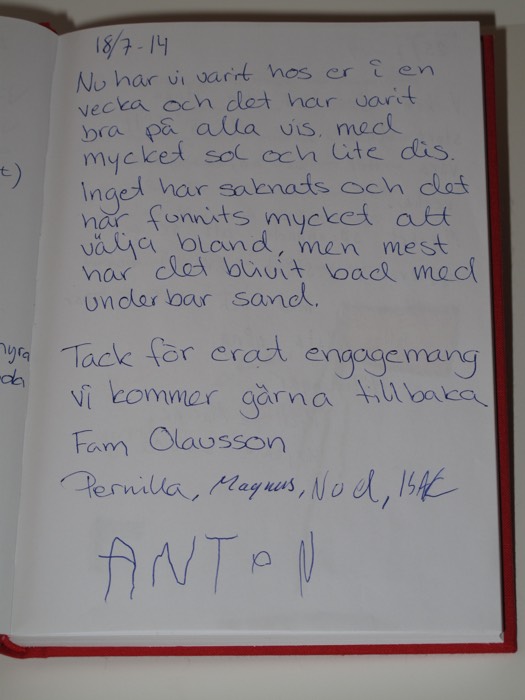 18/7-14
Nu har vi varit hos er i en
vecka och det har varit
bra på alla vis. med
mycket sol och lite dis.
Inget har saknats och det
har funnits mycket att
välja bland, men mest
har det blivit bad med
underbar sand.
Tack för erat engagemang
vi kommer gärna tillbaka
Fam Olausson
Pernilla, Magnus, Noel, ISAK
ANTON